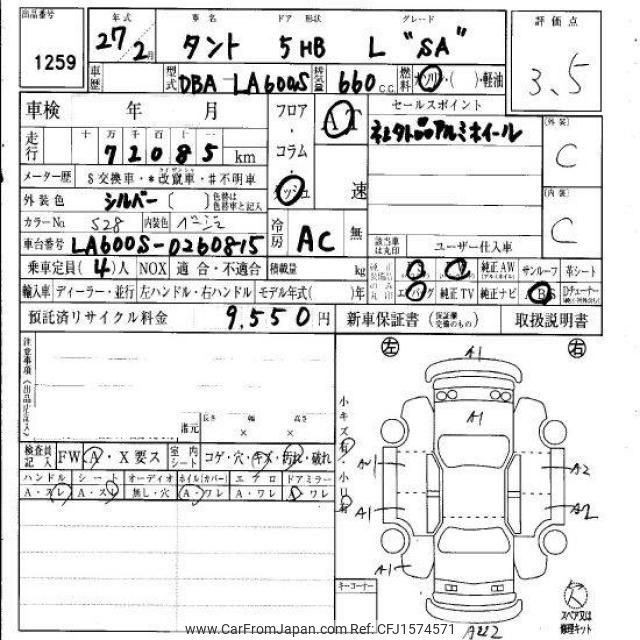 出品番号 年式 車名 ドア 形状 グレード 評価点
1259 27 2月 タント 5 HB L "SA" 3.5
車歴 型式 DBA-LA600S 排気量 660 c.c. 燃料 ガソリン・( )・軽油
車検 年 月 フロア・コラム・ AT セールスポイント [外装]
走行 十 万 千 百 十 一 C
72085 km
メーター歴 $交換車・*改竄車・#不明車 速 [内装]
外装色 シルバー ( ) 色替は色替車と記入 C
カラーNo S28 内装色 ベージュ 冷房 AC 無
車台番号 LA600S-0260815 該当車は丸印 ユーザー仕入車
乗車定員(4)人 NOX 適合・不適合 積載量 kg 純正AW サンルーフ 革シート
輸入車 ディーラー・並行 左ハンドル・右ハンドル モデル年式( )年 エアバッグ 純正TV 純正ナビ ABS
預託済リサイクル料金 9,550円 新車保証書(保証継交換のもの) 取扱説明書
注意事項(出品店記入) 左 右
A1
小キズ有・小凹有 A1
諸元 長さ × 幅 × 高さ
検査員記入 FW A・X要ス 室内シート コゲ・穴・キズ・汚れ・破れ
A1 A2
ハンドル シート オーディオ ホイル(カバー) エアロ ドアミラー
A・スレ A・スレ 無し・穴 A・ワレ A・ワレ A・ワレ
A1 A2
A1
キーコーナー
スペア又は修理キット
www.CarFromJapan.com Ref: CFJ1574571